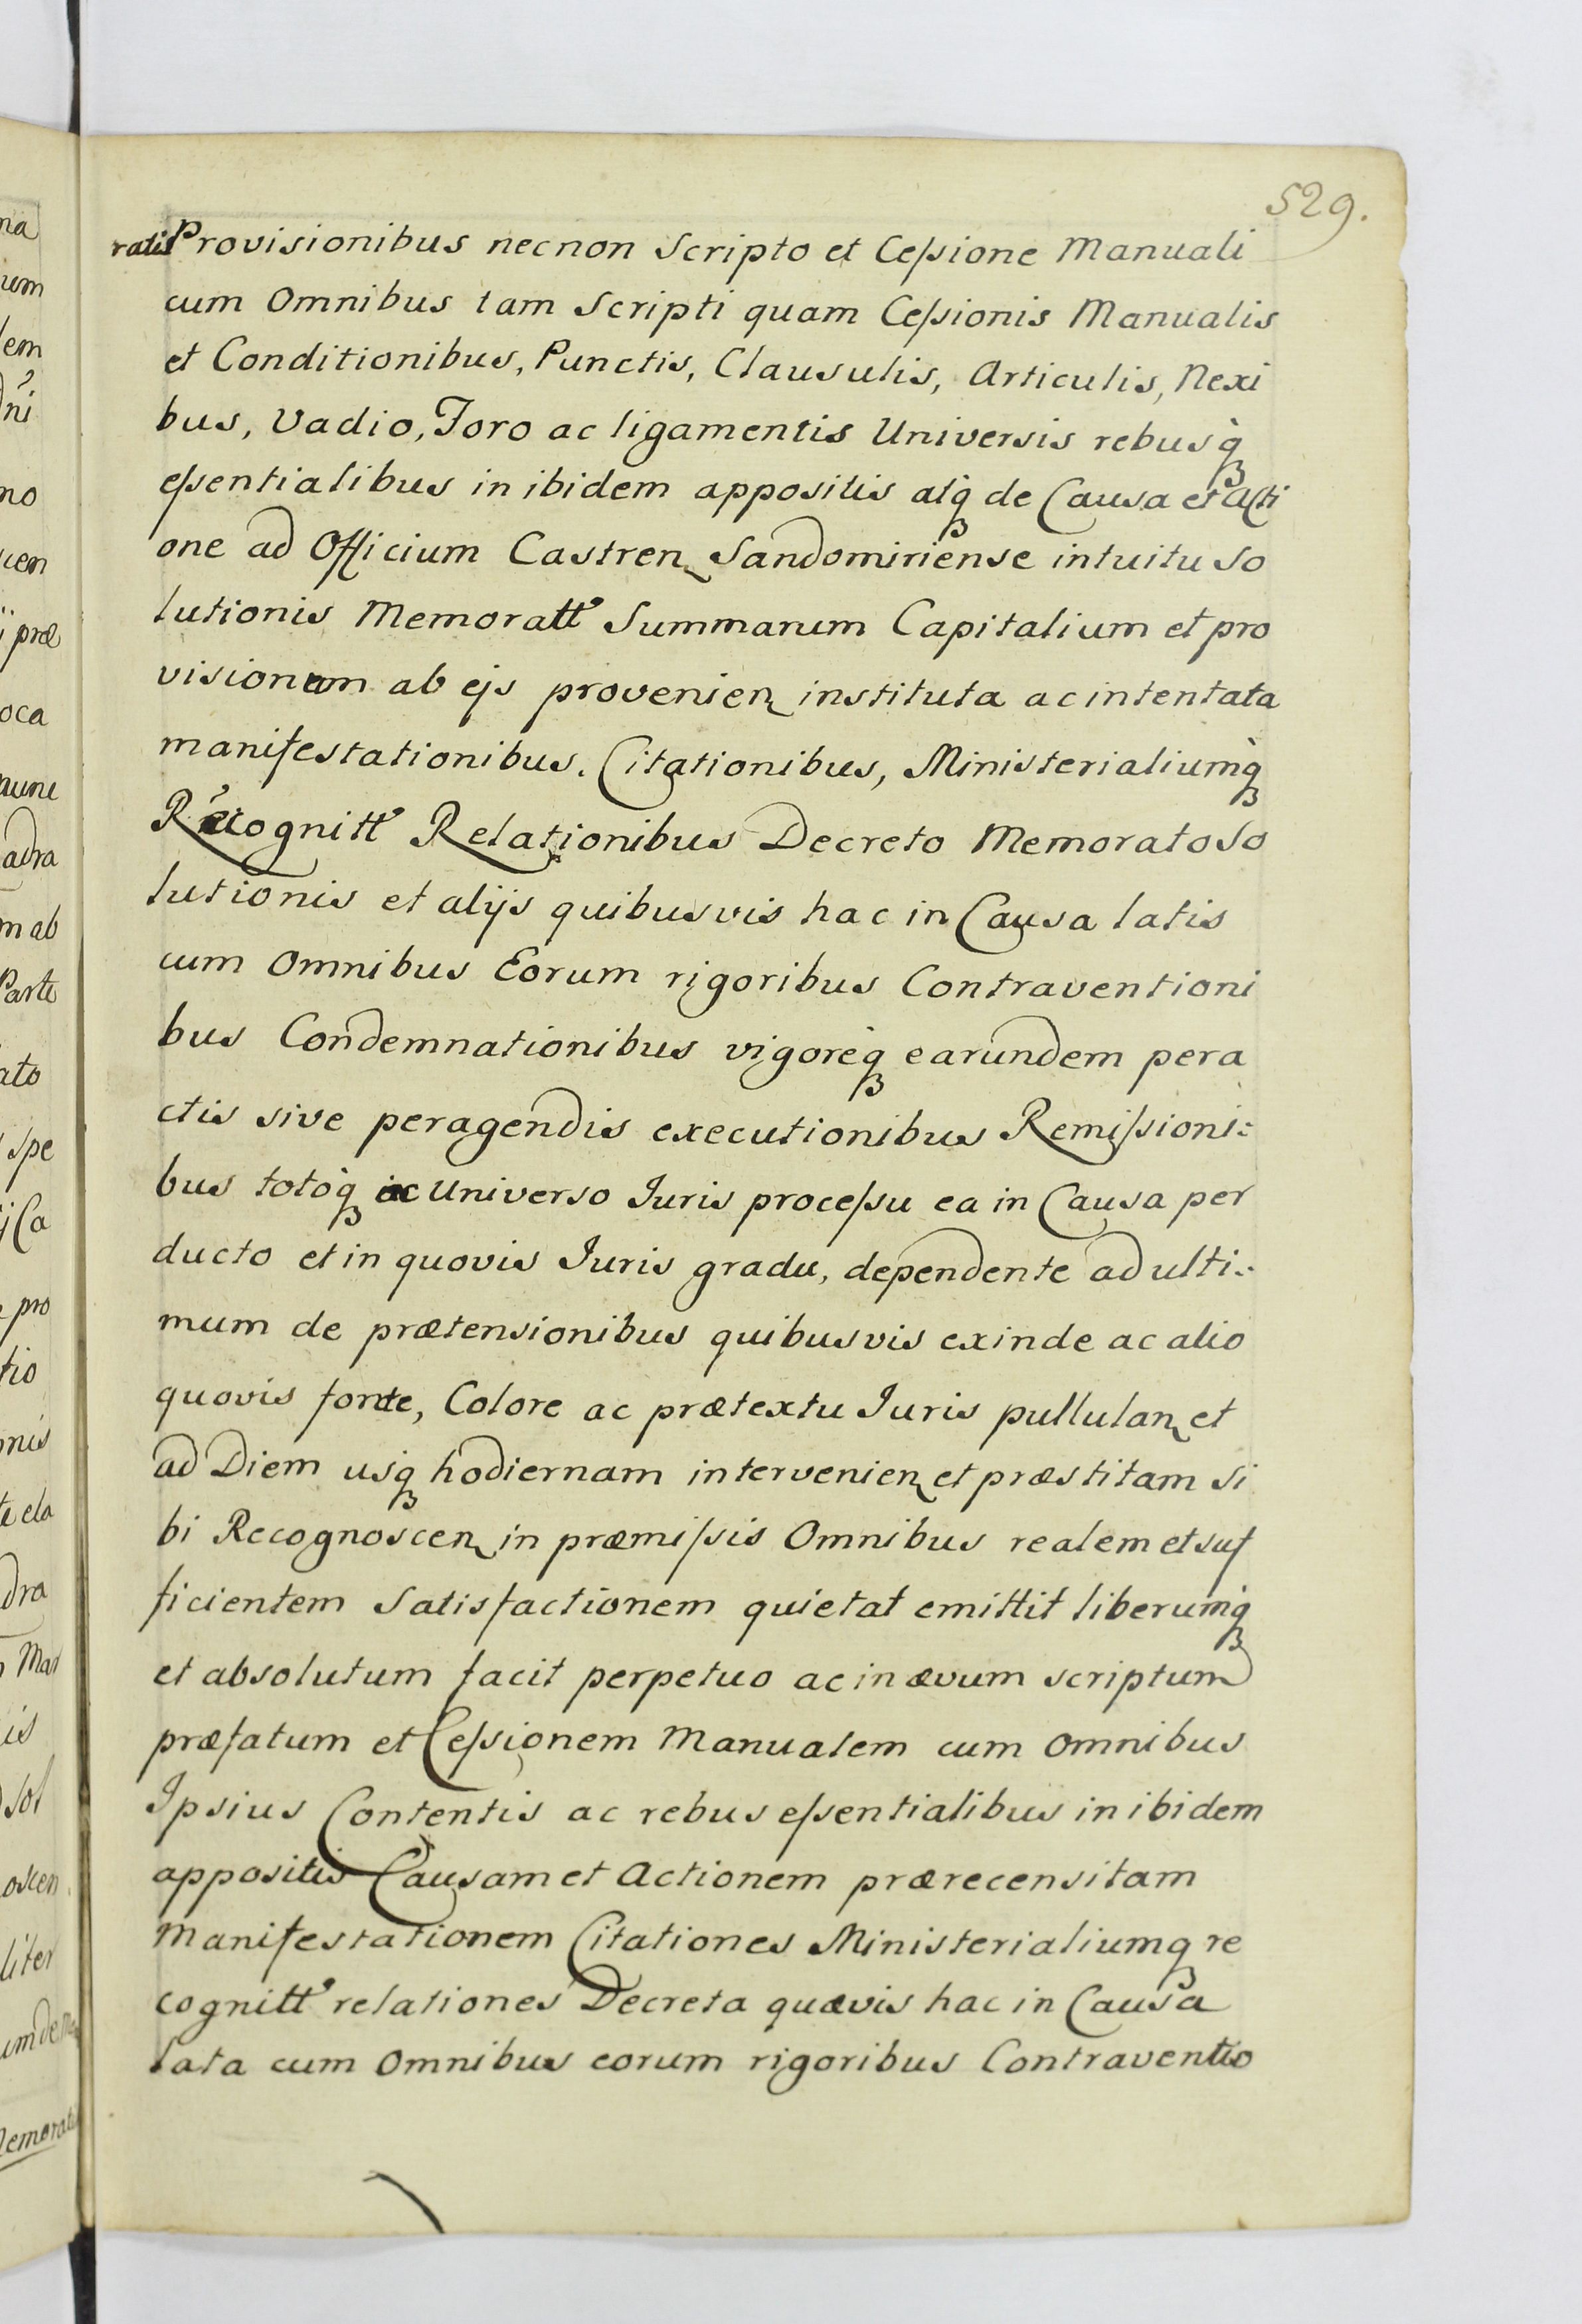 529.
ratis Provisionibus necnon Scripto et Ceſsione Manuali
cum Omnibus tam Scripti quam Ceſsionis Manualis
et Conditionibus, Punctis, Clausulis, Articulis, Nexi
bus, Vadio, Foro ac ligamentis Universis rebusq̀
eſsentialibus in ibidem appositis atq̀ de Causa et Acti
one ad Officium Castren Sandomiriense intuitu So
lutionis Memoratt' Summarum Capitalium et pro
visionum ab ejs provenien instituta ac intentata
manifestationibus. Citationibus, Ministerialiumq̀
Recognitt' Relationibus Decreto Memorato So
lutionis et alijs quibusvis hac in Causa latis
cum Omnibus Eorum rigoribus Contraventioni
bus Condemnationibus vigoreq̀ earundem pera
ctis sive peragendis executionibus Remiſsioni:
bus totoq̀ ac Universo Juris proceſsu ea in Causa per
ducto et in quovis Juris gradu, dependente ad ulti:
mum de prætensionibus quibusvis exinde ac alio
quovis fonte, Colore ac prætextu Juris pullulan et
ad Diem usq̀ hodiernam intervenien et præstitam Si
bi Recognoscen in præmiſsis Omnibus realem et suf
ficientem Satisfactionem quietat emittit liberumq̀
et absolutum facit perpetuo ac in ævum scriptum
præfatum et Ceſsionem Manualem cum Omnibus
Ipsius Contentis ac rebus eſsentialibus in ibidem
appositis Causam et Actionem prærecensitam
Manifestationem Citationes Ministerialiumq re
cognitt' relationes Decreta quævis hac in Causa
lata cum Omnibus eorum rigoribus Contraventio